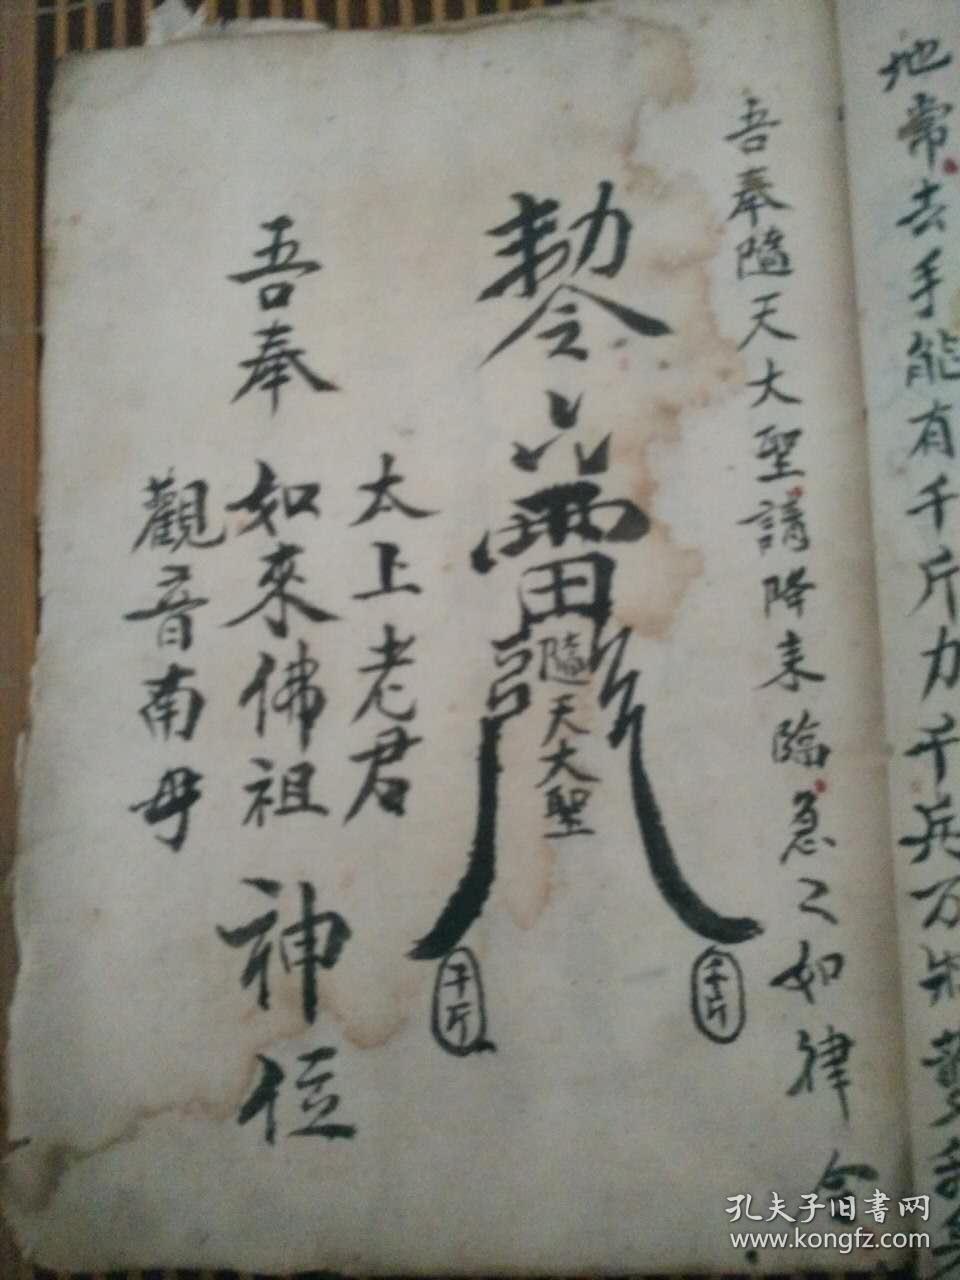 地常去手能有千斤力千兵万
吾奉隨天大聖請降來臨急々如律令
勅令
雷
隨天大聖
千斤
千斤
太上老君
吾奉如來佛祖神位
觀音南母
孔夫子旧書网
www.kongfz.com